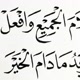 الجميع وافعل
مادام الخير